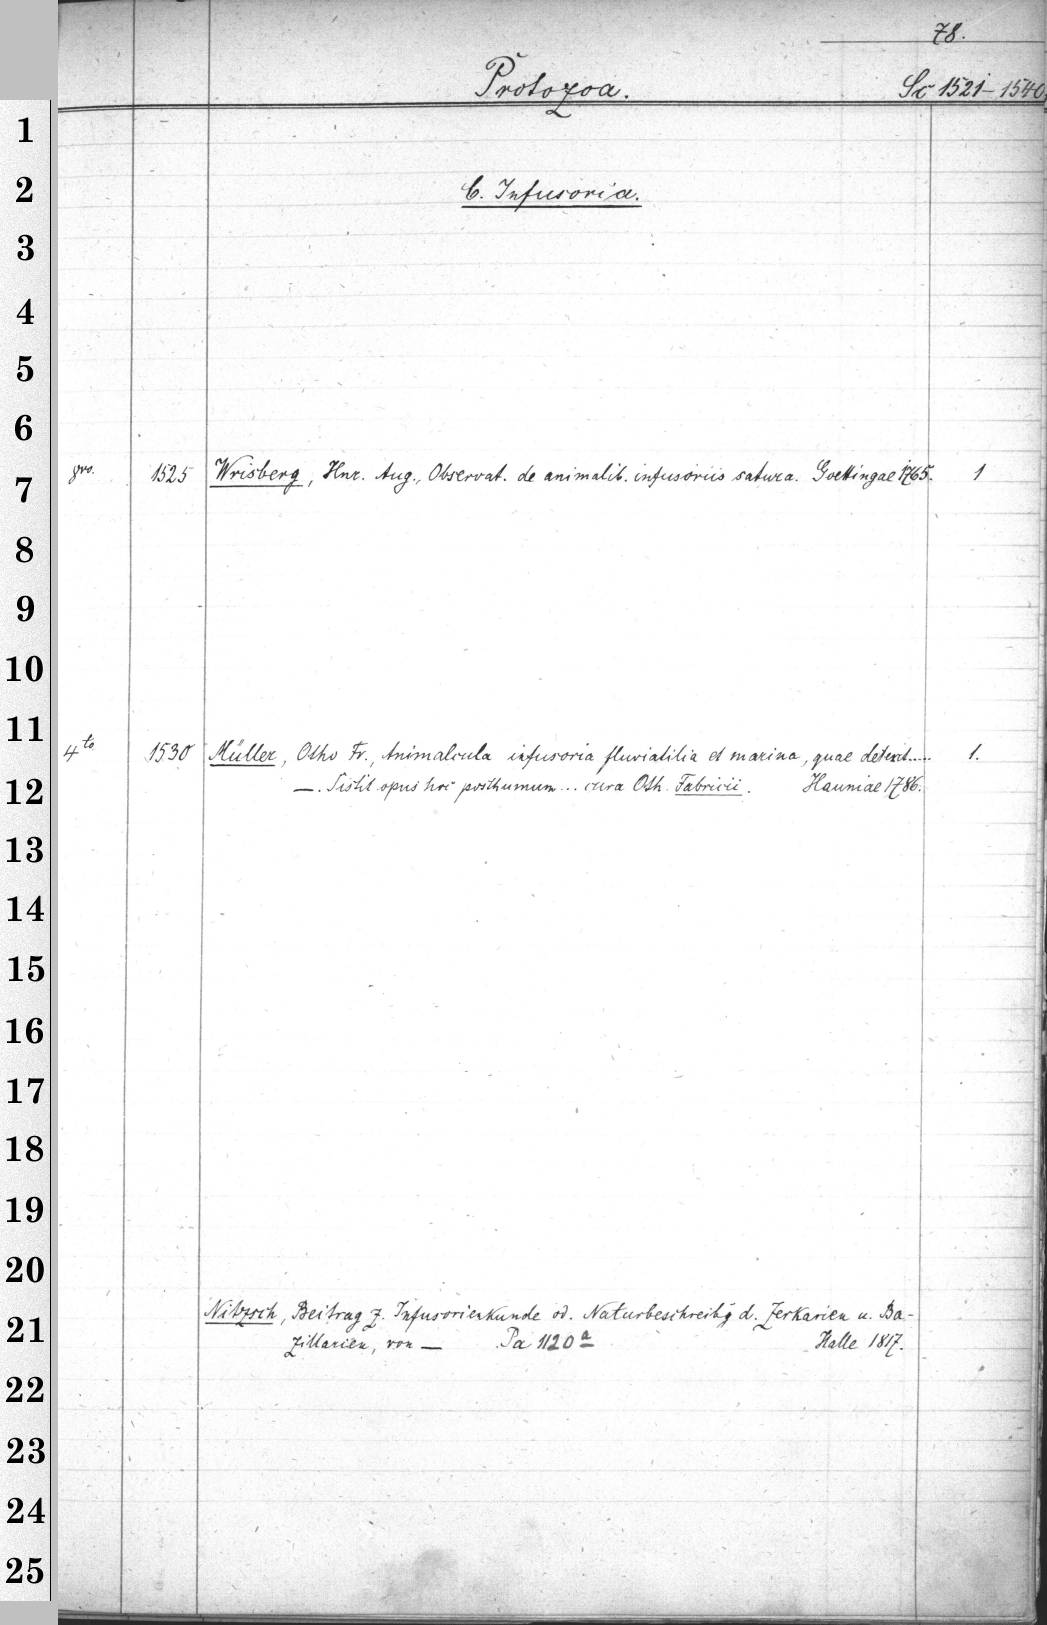 78.
Protozoa. Sc 1521–1540
1
2 C. Infusoria.
3
4
5
6
7 8vo. 1525 Wrisberg, Hnr. Aug., Observat. de animalib. infusoriis satura. Goettingae 1765. 1
8
9
10
11 4to 1530 Müller, Otho Fr., Animalcula infusoria fluviatilia et marina, quae detexit..... 1.
12 —. Sistit opus hoc posthumum... cura Oth. Fabricii. Hauniae 1786.
13
14
15
16
17
18
19
20
21 Nitzsch, Beitrag z. Infusorienkunde od. Naturbeschreibg d. Zerkarien u. Ba-
zillarien, von — Pa 1120a Halle 1817.
22
23
24
25